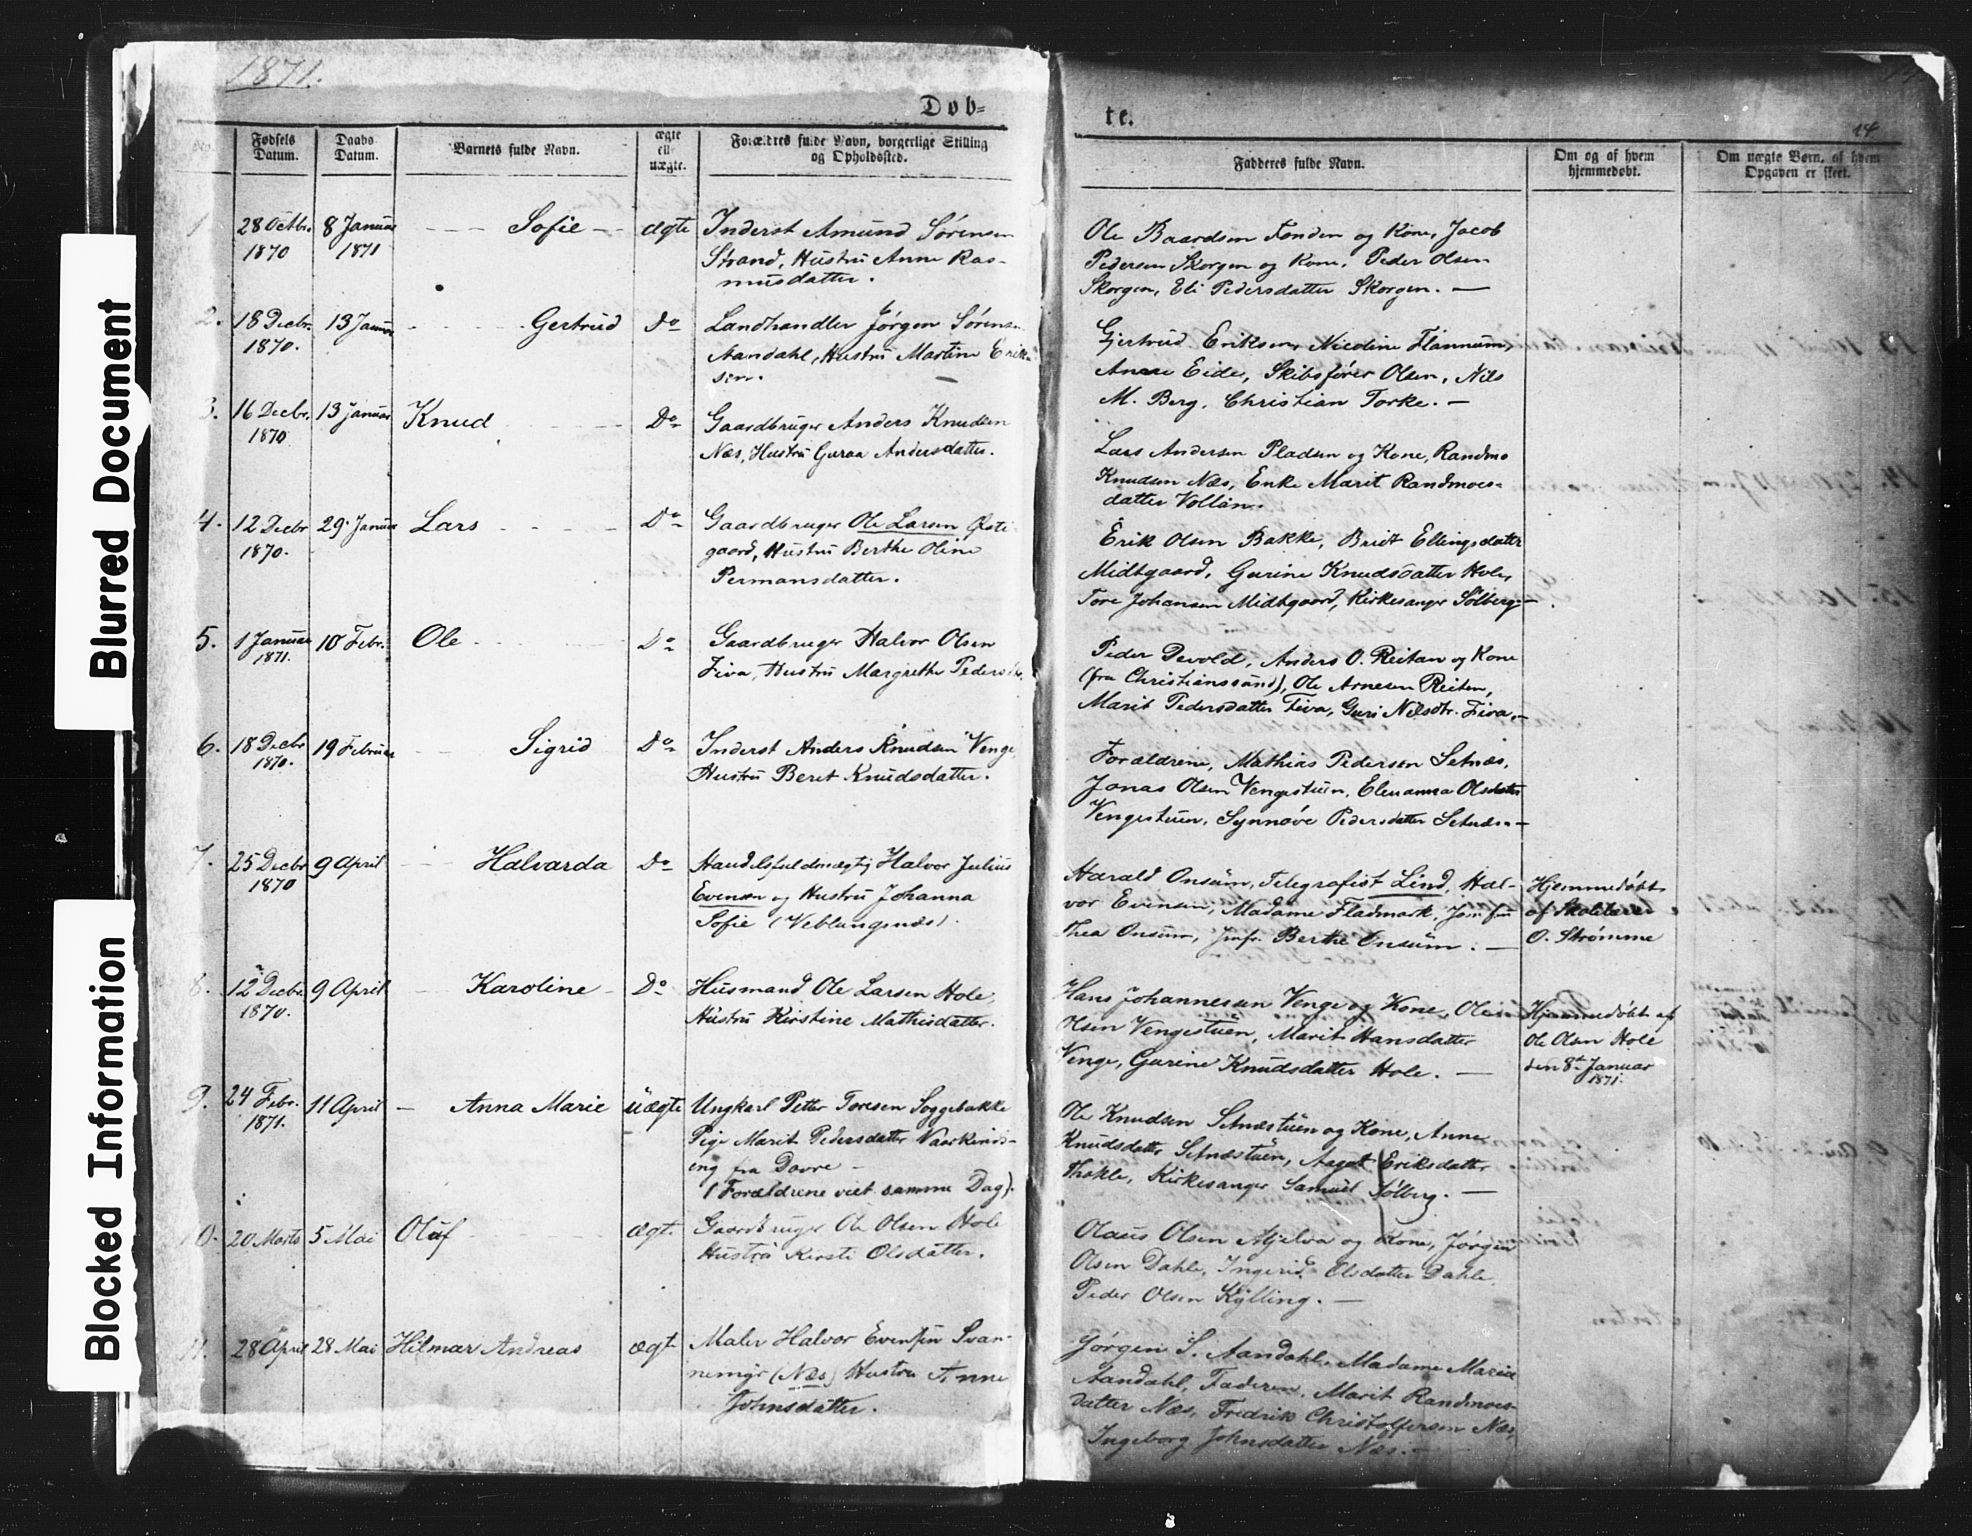 Blurred Document
Blocked Information
1871.
Døb=
te.
14
No.
Fødsels Datum.
Daabs Datum.
Barnets fulde Navn.
ægte ell. uægte.
Forældres fulde Navn, borgerlige Stilling og Opholdssted.
Fadderes fulde Navn.
Om og af hvem hjemmedøbt.
Om uægte Børn, af hvem Opgaven er skeet.
1 28 Octbr. 8 Januar --- Sofie -- ægte Inderst Amund Sørensen
1870 1871 Strand, Hustru Anne Ras-
musdatter.
Ole Baardsen Fonden og Kone, Jacob
Pedersen Skorgen og Kone, Peder Olsen
Skorgen, Eli Pedersdatter Skorgen. —
2. 18 Decbr. 13 Januar Gertrud Do Landhandler Jørgen Sørensen
1870. Aandahl, Hustru Martine Erik-
sen. —
Gjertrud Eriksen, Nicoline Flannum,
Anne Eide, Skibsfører Olsen, Nils
M. Berg, Christian Torke. —
3. 16 Decbr. 13 Januar Knud Do Gaardbruger Anders Knudsen
1870 Næs, Hustru Guraa Andersdatter.
Lars Andersen Pladsen og Kone, Randmo
Knudsen Næs, Enke Marit Randmoes-
datter Vollan.
4. 12 Decbr 29. Januar Lars Do Gaardbruger Ole Larsen Øste
1870. gaard, Hustru Berthe Oline
Permansdatter.
Erik Olsen Bakke, Bridt Ellingsdatter
Midtgaard, Gurine Knudsdatter Hole,
Tore Johansen Midtgaard, Kirkesanger Sølberg. —
5. 1 Januar 10 Febr. Ole Do Gaardbruger Halvor Olsen
1871. Fiva, Hustru Margrethe Pedersdtr.
Peder Devold, Anders O. Reitan og Kone
(fra Christianssund), Ole Arnesen Reiten,
Marit Pedersdatter Fiva, Guri Nilsdtr. Fiva. —
6. 18 Decbr 19 Februar Sigrid Do Inderst Anders Knudsen Venge,
1870. Hustru Beret Knudsdatter.
Forældrene, Mathias Pedersen Setnæs,
Jonas Olsen Vengestuen, Elenanna Olsdatter
Vengestuen, Synnøve Pedersdatter Setnæs. —
7. 25 Decbr 9 April Halvarda Do Handelsfuldmægtig Halvor Julius
1870 Evensen og Hustru Johanna
Sofie (Veblungsnæs).
Harald Onsum, Telegrafist Lind, Hal-
vor Evensen, Madame Fladmark, Jomfru
Thea Onsum, Jmfr. Berthe Onsum. —
Hjemmedøbt
af Skolelærer
O. Strømme
8. 12 Decbr. 9 April Karoline Do Husmand Ole Larsen Hole,
1870. Hustru Kirstine Mathisdatter.
Hans Johannessen Venge og Kone, Ole
Olsen Vengestuen, Marit Hansdatter
Venge, Gurine Knudsdatter Hole. —
Hjemmedøbt af
Ole Olsen Hole
den 8de Januar
1871.
9. 24 Febr. 11 April — Anna Marie uægte Ungkarl Petter Toresen Soggebakke
1871. Pige Marit Pedersdatter Vaarkinds-
eng fra Dovre —
(Forældrene viet samme Dag).
Ole Knudsen Setnæstuen og Kone, Anne
Knudsdatter Setnæstuen, Aagot Eriksdatter
Thokle, Kirkesanger Samuel Sølberg. —
10. 20 Marts 5 Mai Oluf ægt. Gaardbruger Ole Olsen Hole
Hustru Kirsti Olsdatter.
Olaus Olsen Mjelva og Kone, Jørgen
Olsen Dahle, Ingerid Olsdatter Dahle,
Peder Olsen Kylling. —
11. 28 April 28 Mai Hilmar Andreas ægt. Maler Halvor Evensen Svan-
nemyr (Næs) Hustru Anne
Johnsdatter.
Jørgen S. Aandahl, Madame Marie
Aandahl, Faderen, Marit Randmoes-
datter Næs, Fredrik Christoffersen Næs,
Ingeborg Johnsdatter Næs. —